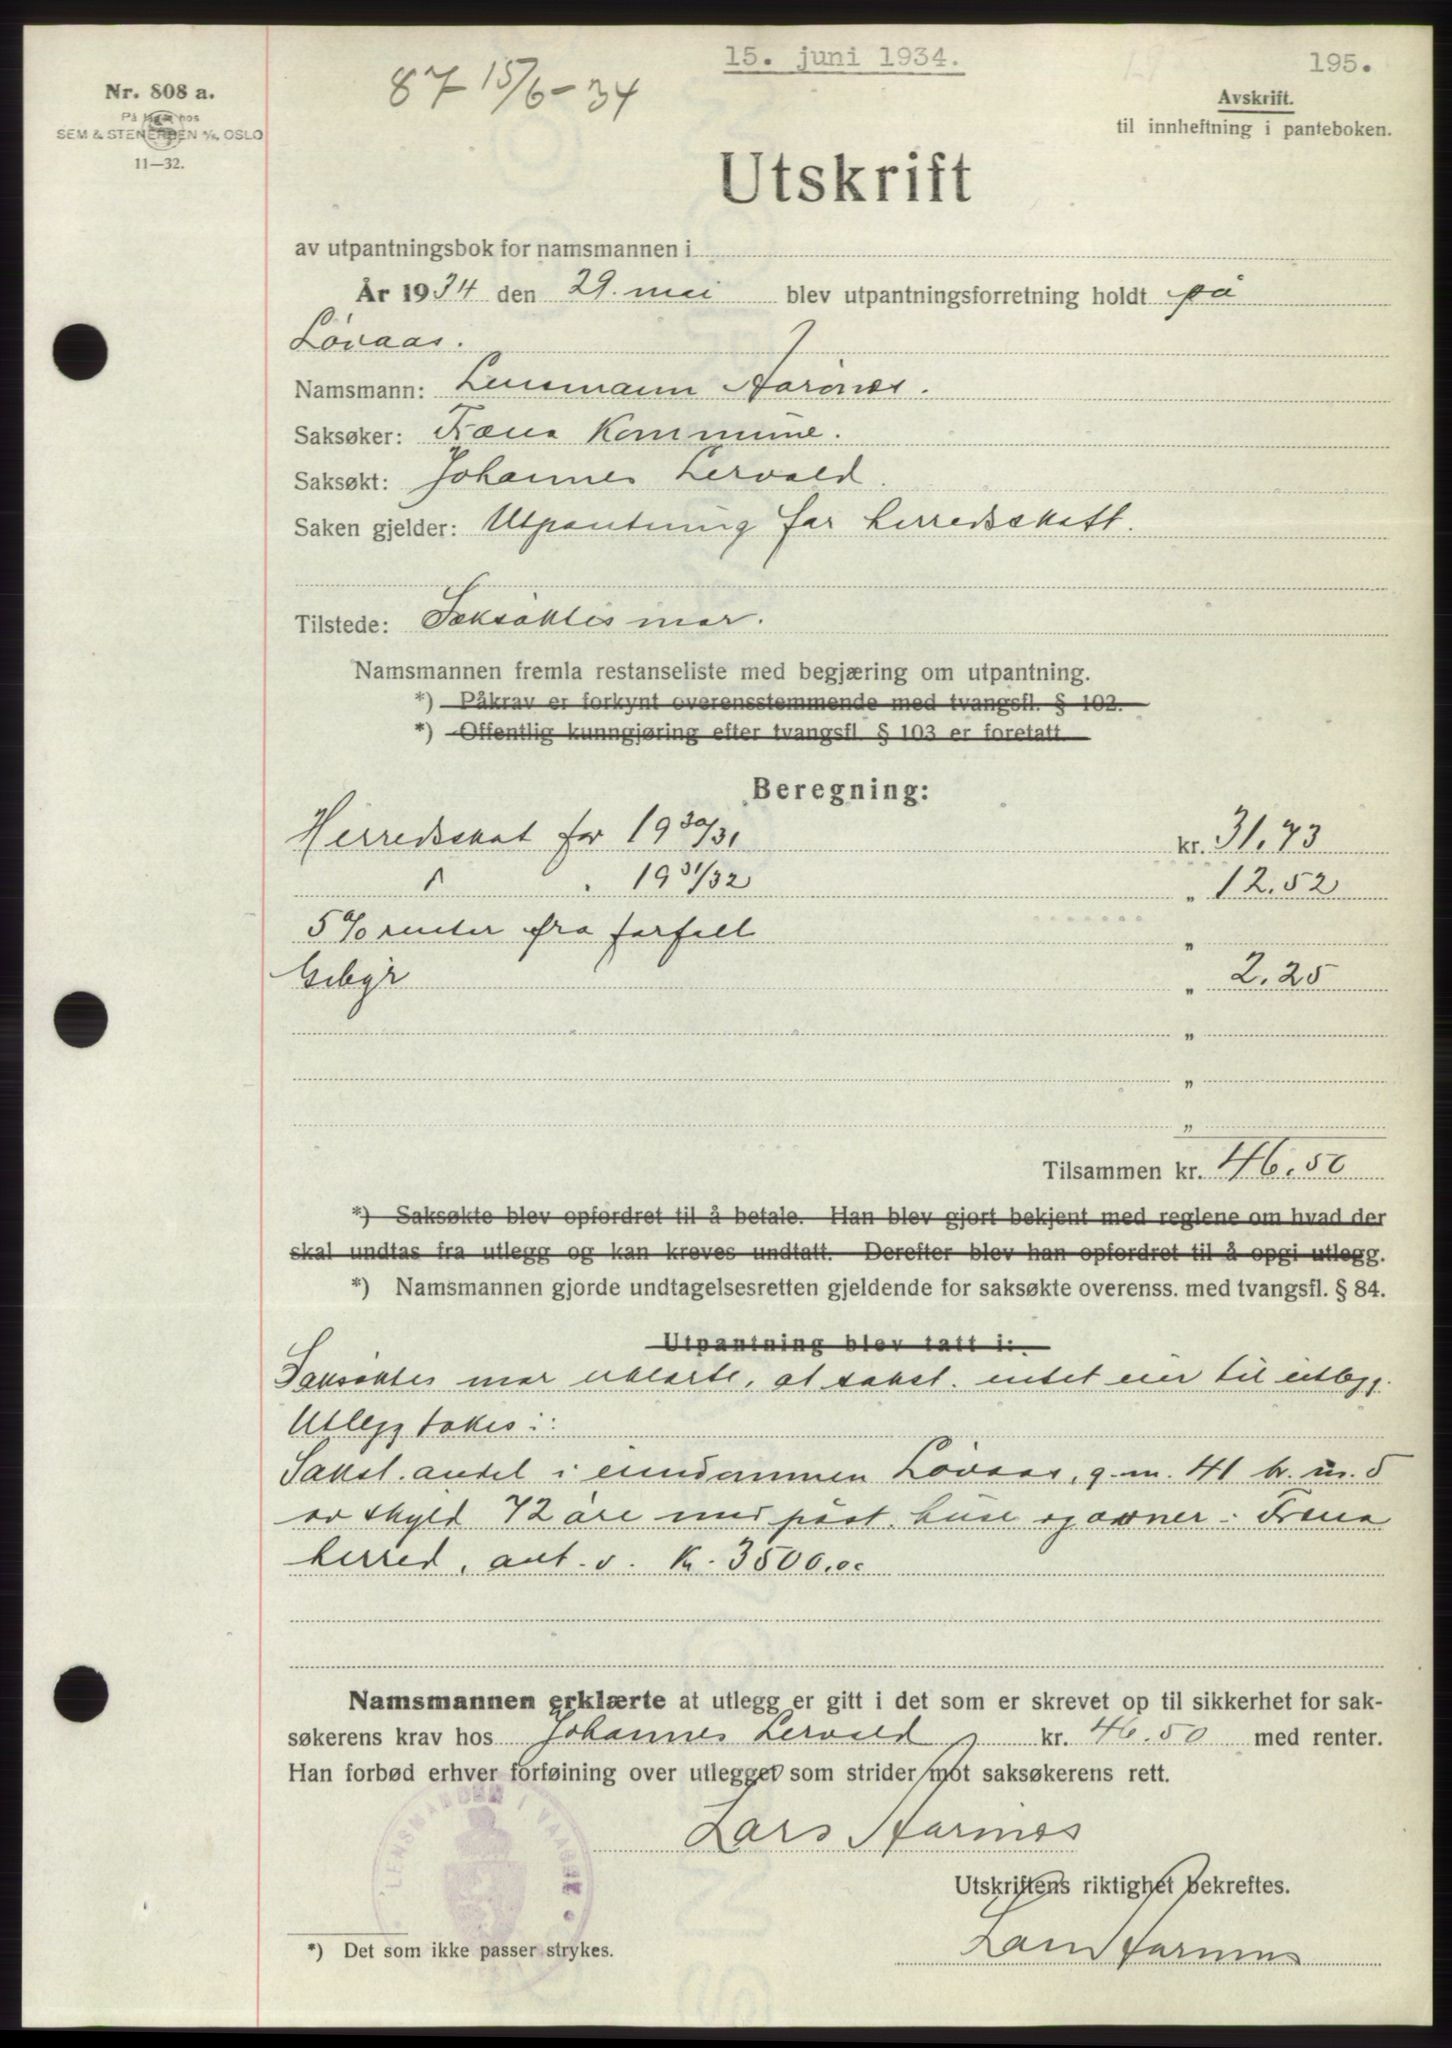 15. juni 1934.
195.
87 15/6-34
Nr. 808 a.
På lager hos
SEM & STENERSEN A/S, OSLO
11—32.
Avskrift.
til innheftning i panteboken.
Utskrift
av utpantningsbok for namsmannen i
År 1934 den 29. mai blev utpantningsforretning holdt på
Løvaas.
Namsmann: Lensmann Aarønes.
Saksøker: Fræna Kommune.
Saksøkt: Johannes Lervold.
Saken gjelder: Utpantning for herredsskatt.
Tilstede: Saksøktes mor.
Namsmannen fremla restanseliste med begjæring om utpantning.
*) Påkrav er forkynt overensstemmende med tvangsfl. § 102.
*) Offentlig kunngjøring efter tvangsfl. § 103 er foretatt
Beregning:
Herredsskat for 1930/31 kr. 31.73
" " 1931/32 „ 12.52
5% renter fra forfall „
Gebyr „ 2.25
„
„
„
Tilsammen kr. 46.50
*) Saksøkte blev opfordret til å betale. Han blev gjort bekjent med reglene om hvad der
skal undtas fra utlegg og kan kreves undtatt. Derefter blev han opfordret til å opgi utlegg.
*) Namsmannen gjorde undtagelsesretten gjeldende for saksøkte overenss. med tvangsfl. § 84.
Utpantning blev tatt i:
Saksøktes mor erklærte, at sakst. intet eier til utlegg.
Utlegg tokes i:
Sakst. andel i eiendommen Løvaas, g.nr. 41 br. nr. 5
av skyld 72 øre med påst. huse og  i Fræna
herred, ant. v. kr. 3500.00
Namsmannen erklærte at utlegg er gitt i det som er skrevet op til sikkerhet for sak-
søkerens krav hos Johannes Lervold kr. 46.50 med renter.
Han forbød erhver forføining over utlegget som strider mot saksøkerens rett.
Lars Aarønes
LENSMANDEN I VAAGØE
Utskriftens riktighet bekreftes.
Lars Aarønes
*) Det som ikke passer strykes.